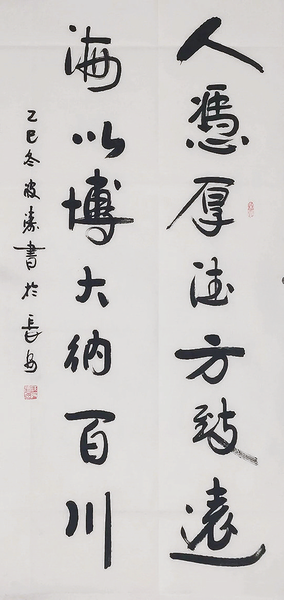 人憑厚德方致遠
海以博大納百川
乙巳冬波濤書於長安